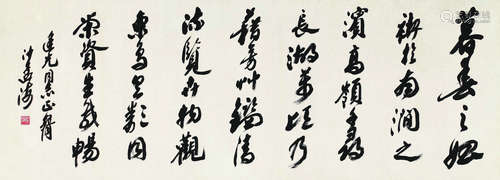 暮春之始
禊於南澗之
濱高嶺千尋
長湖萬頃乃
藉芳艸鑑清
流覽卉物觀
魚鳥具類同
榮資生咸暢
同志正
沙孟海